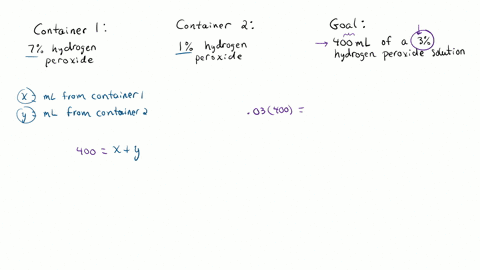 Container 1:
7% hydrogen
peroxide
Container 2:
1% hydrogen
peroxide
Goal:
→ 400 mL of a 3%
hydrogen peroxide solution
x = mL from container 1
y = mL from container 2
.03(400) =
400 = x + y